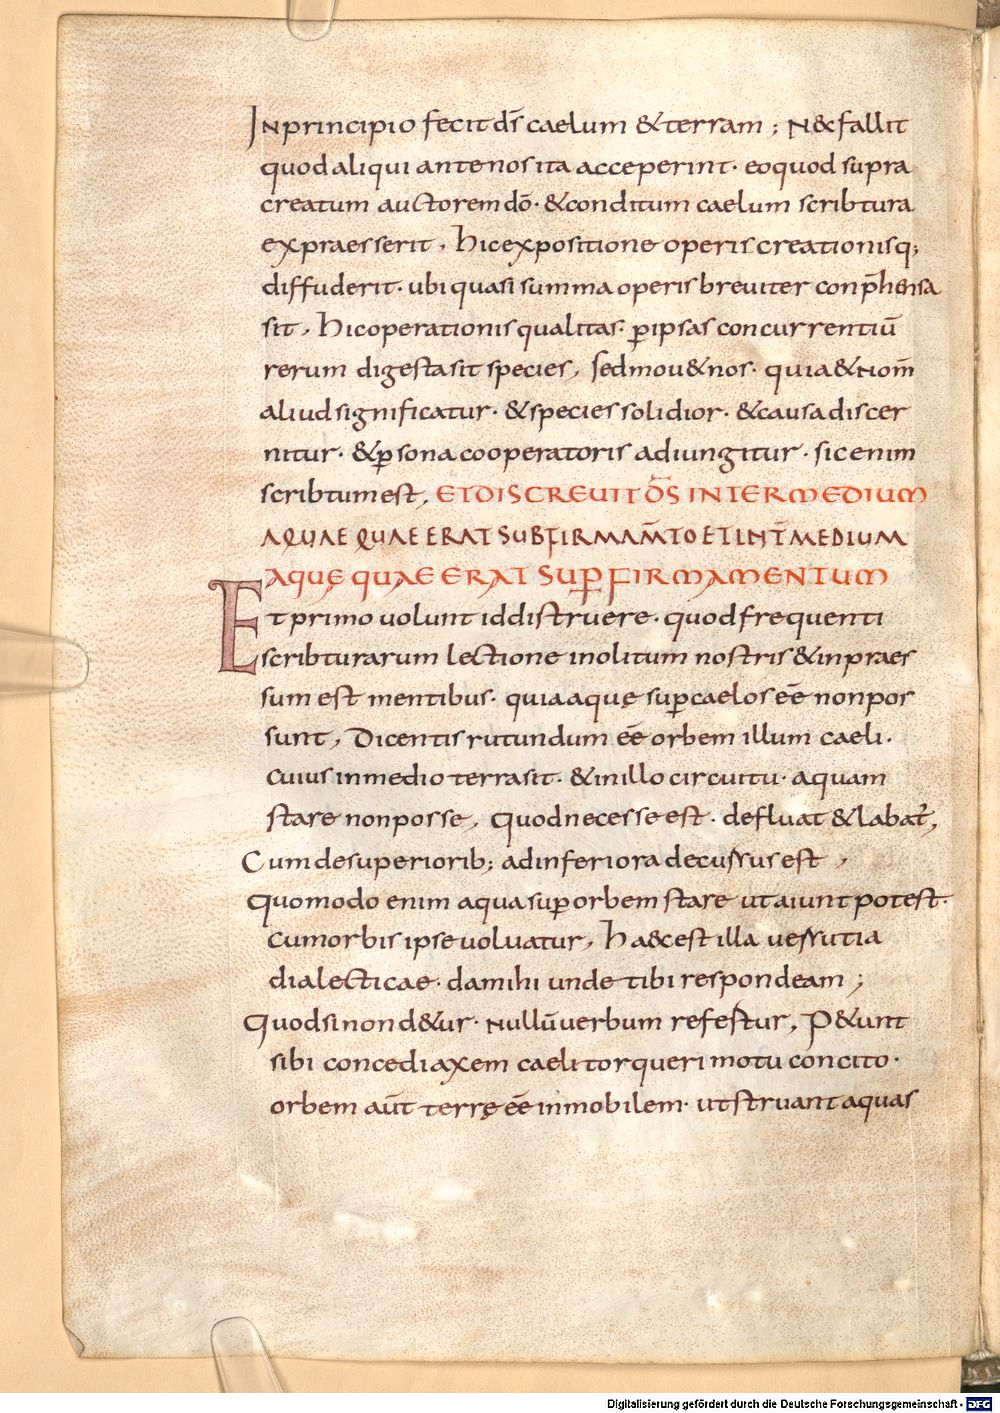 In principio fecit d̅s caelum & terram ; N& fallit
quod aliqui ante nos ita acceperint · eo quod supra
creatum auctorem do̅ · & conditum caelum scribtura
expraesserit , hic expositione operis creationisq;
diffuderit · ubi quasi summa operis breuiter conp̅hensa
sit , hic operationis qualitas · ꝑ ipsas concurrentiu̅
rerum digesta sit species , sed mou& nos · quia & nom̅
aliud significatur · & species solidior · & causa discer
nitur · & ꝑsona cooperatoris adiungitur · sic enim
scribtum est , ET DISCREUIT D̅S INTER MEDIUM
AQUAE QUAE ERAT SUB FIRMAM̅TO ET INT̅ MEDIUM
AQUĘ QUAE ERAT SUꝐ FIRMAMENTUM
Et primo uolunt id distruere · quod frequenti
scribturarum lectione inolitum nostris & inpraes
sum est mentibus · quia aquę suꝑ caelos ee̅ non pos
sunt , Dicentis rutundum ee̅ orbem illum caeli ·
cuius in medio terra sit · & in illo circuitu · aquam
stare non posse , quod necesse est · defluat & labat̅ ,
Cum de superiorib; ad inferiora decussus est ,
quomodo enim aqua suꝑ orbem stare ut aiunt potest ·
cum orbis ipse uoluatur , ha&c est illa uessutia
dialecticae · da mihi unde tibi respondeam ;
Quod si non d&ur · nullu̅ uerbum refestur , P&unt
sibi concedi axem caeli torqueri motu concito ·
orbem au̅t terrę ee̅ inmobilem · ut struant aquas
Digitalisierung gefördert durch die Deutsche Forschungsgemeinschaft - DFG